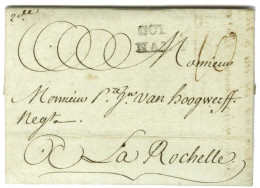 COL
Monsieur
Monsieur P.re J.n van hoogwerff
Negt.
La Rochelle